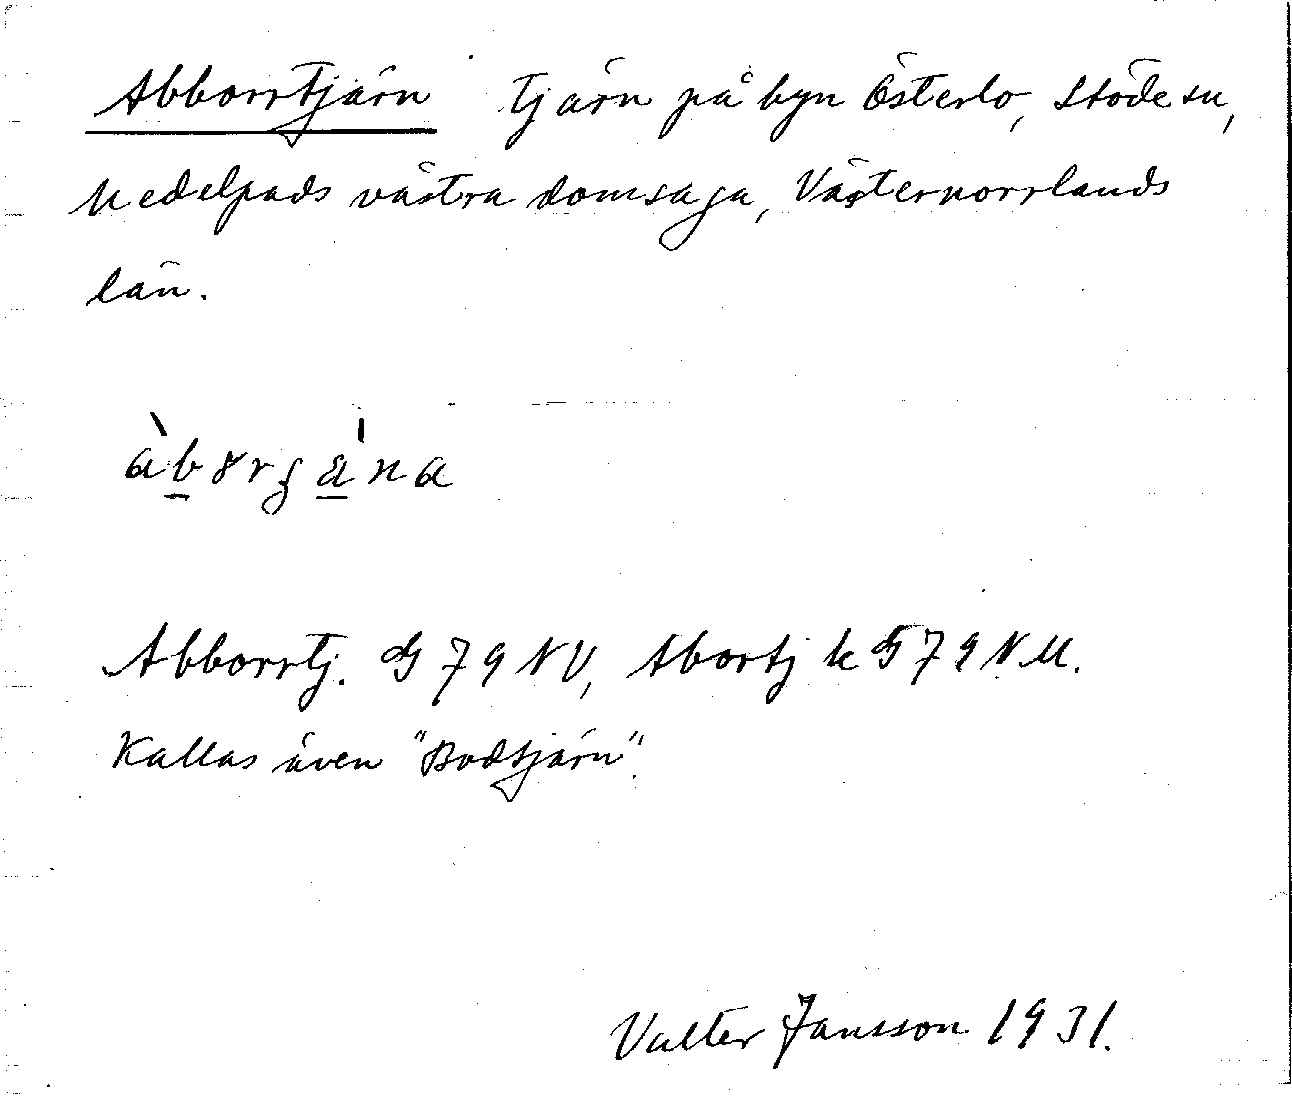 Abborrtjärn tjärn på byn Österlo, Stöde sn,
Medelpads västra domsaga, Västernorrlands
län.
àbɤrʂána
Abborrtj. G 79 NV, Abortj k G 79 NM.
Kallas även "Bodtjärn".
Valter Jansson 1931.